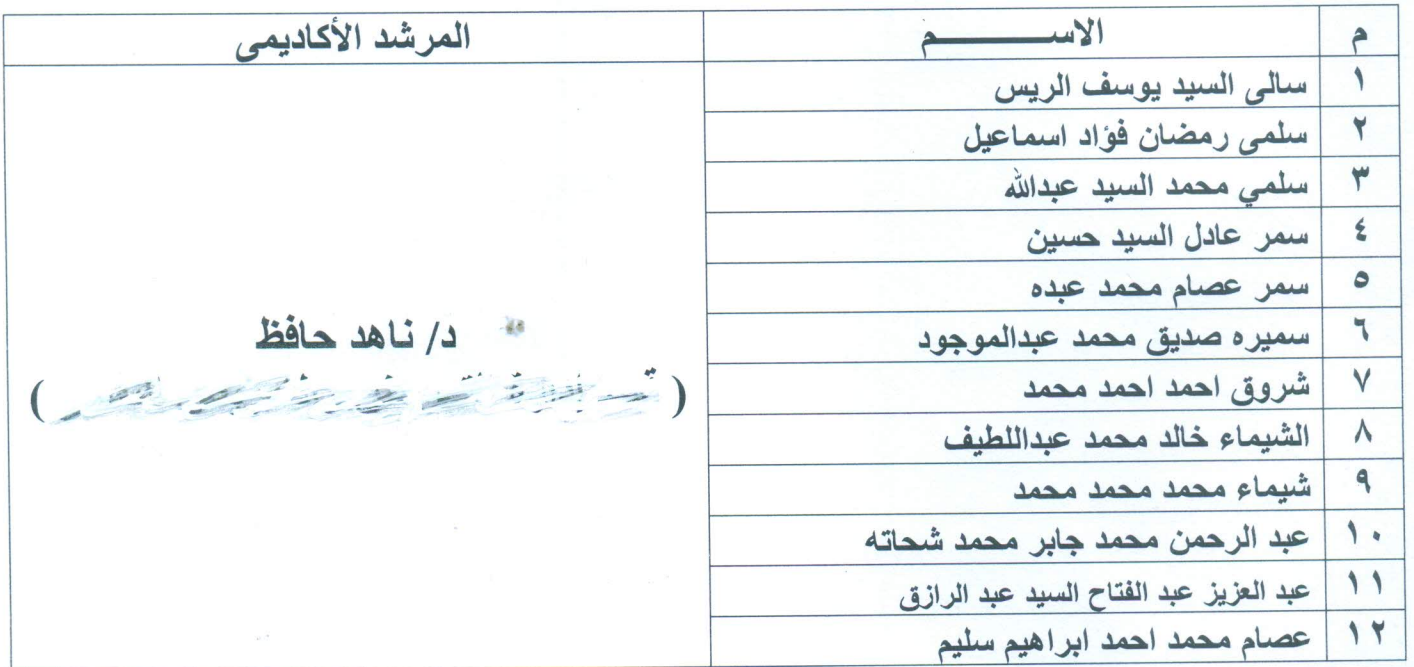 م الاســـــــــم المرشد الأكاديمى
١ سالى السيد يوسف الريس
٢ سلمى رمضان فؤاد اسماعيل
٣ سلمي محمد السيد عبدالله
٤ سمر عادل السيد حسين
٥ سمر عصام محمد عبده
٦ سميره صديق محمد عبدالموجود
٧ شروق احمد احمد محمد
٨ الشيماء خالد محمد عبداللطيف
٩ شيماء محمد محمد محمد
١٠ عبد الرحمن محمد جابر محمد شحاته
١١ عبد العزيز عبد الفتاح السيد عبد الرازق
١٢ عصام محمد احمد ابراهيم سليم
د/ ناهد حافظ
( )